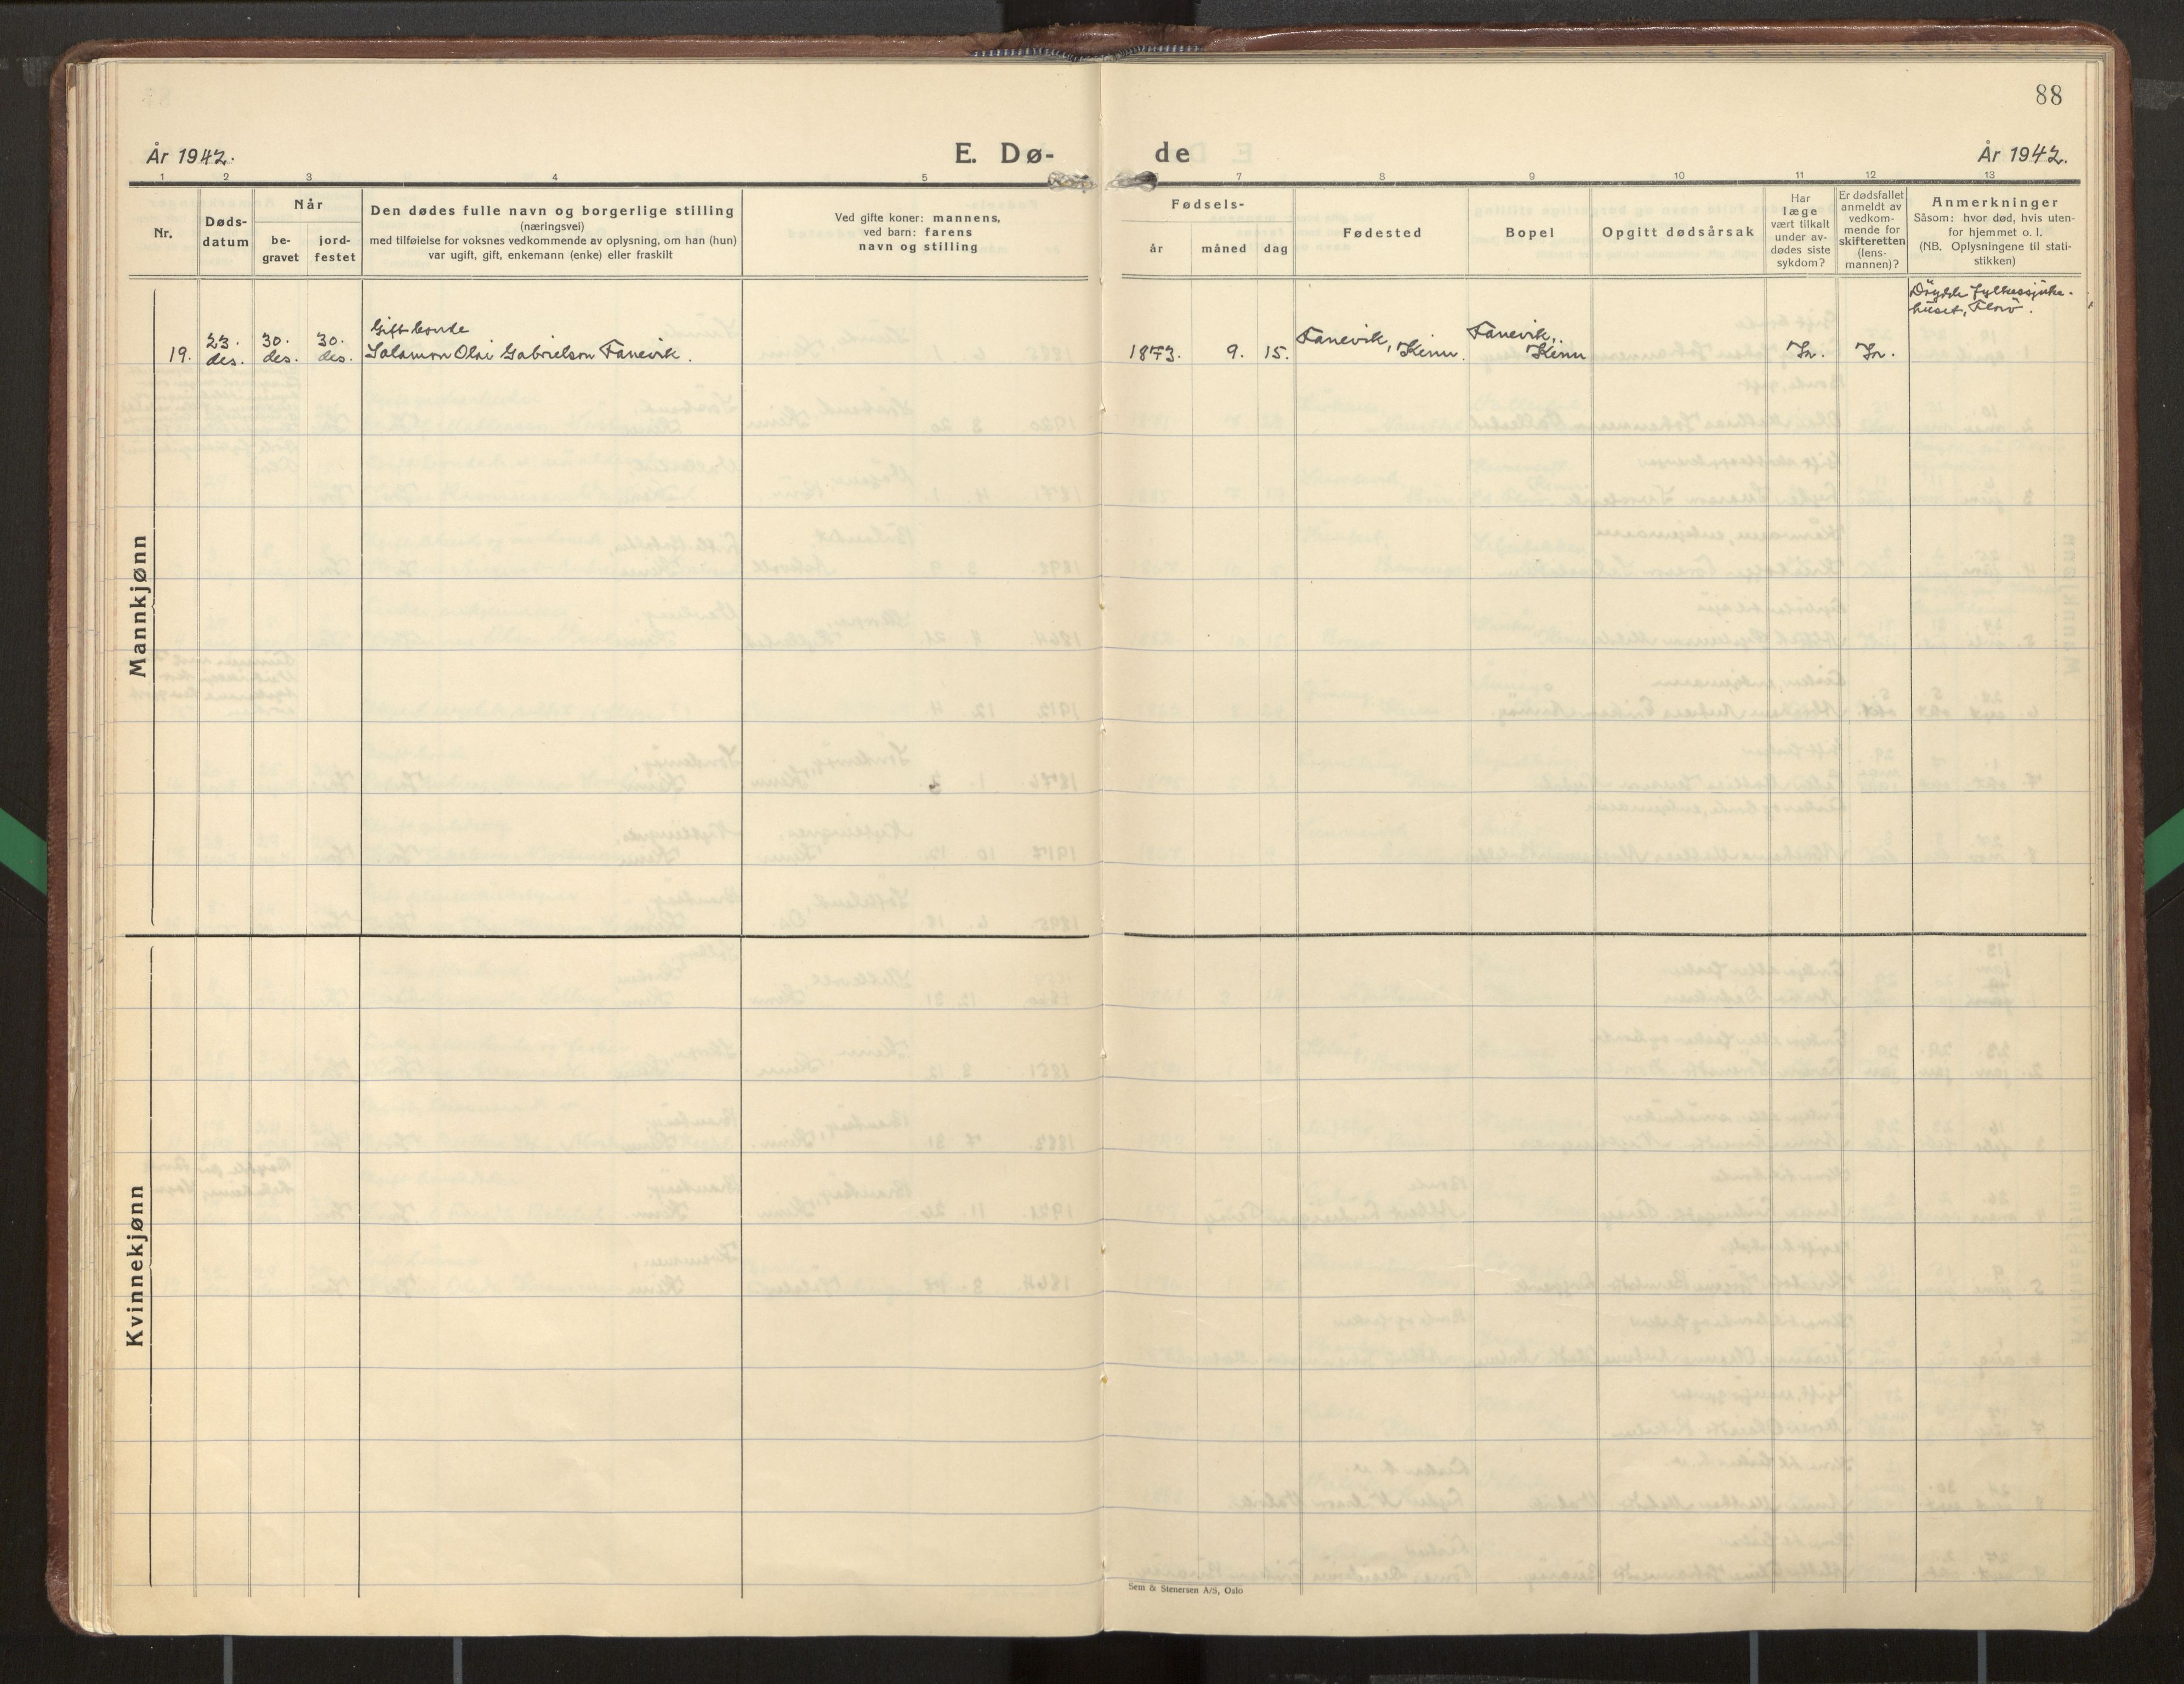 88
År 1942.
E. Dø-
de
År 1942.
1 2 3 4 5 7 8 9 10 11 12 13
Nr.
Døds-
datum
Når
be-
gravet
jord-
festet
Den dødes fulle navn og borgerlige stilling
(næringsvei)
med tilføielse for voksnes vedkommende av oplysning, om han (hun)
var ugift, gift, enkemann (enke) eller fraskilt
Ved gifte koner: mannens,
ved barn: farens
navn og stilling
Fødsels-
år måned dag
Fødested
Bopel
Opgitt dødsårsak
Har
læge
vært tilkalt
under av-
dødes siste
sykdom?
Er dødsfallet
anmeldt av
vedkom-
mende for
skifteretten
(lens-
mannen)?
Anmerkninger
Såsom: hvor død, hvis uten-
for hjemmet o. l.
(NB. Oplysningene til stati-
stikken)
Mannkjønn
19.
23.
des.
30.
des.
30.
des.
Gift bonde
Salamon Olai Gabrielson Fanevik.
1873. 9. 15.
Fanevik,
Kinn.
Fanevik,
Kinn
Ja.
Ja.
Döydde fylkessjuke-
huset, Florö.
Kvinnekjønn
Sem & Stenersen A/S, Oslo